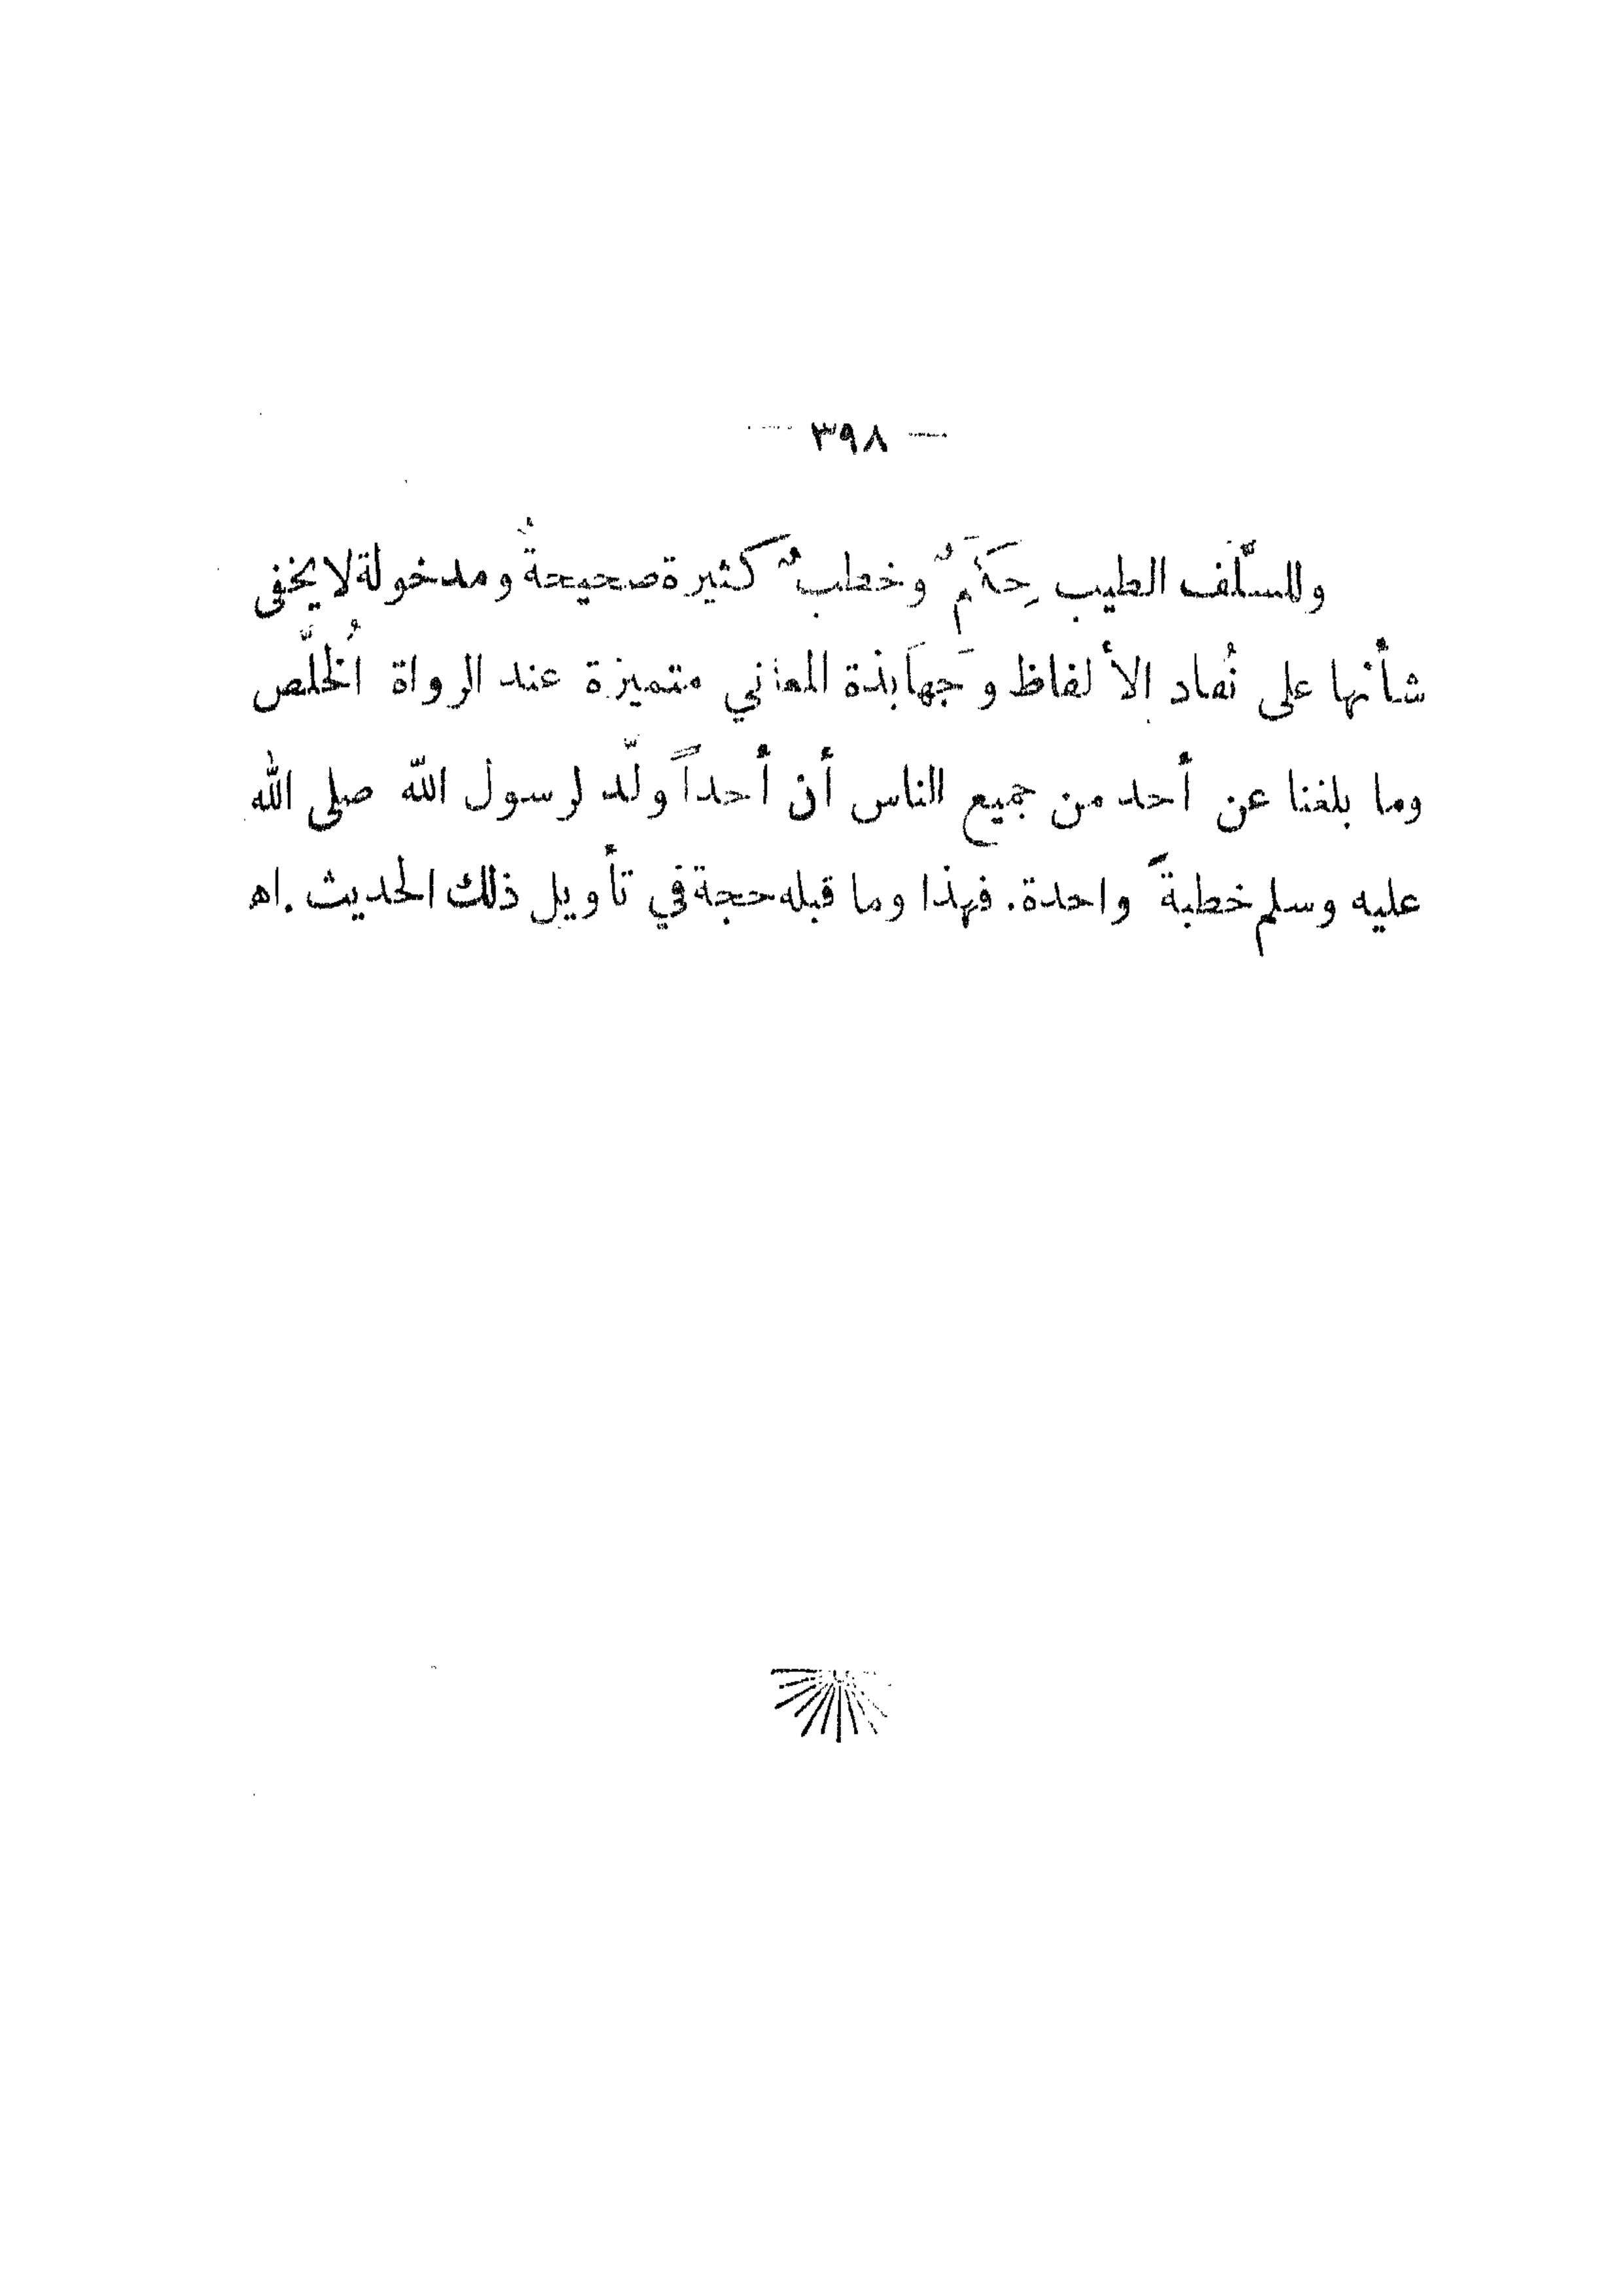 — ٣٩٨ —
وللسَّلَف الطيب حِكَمٌ وخطبٌ كثيرة صحيحةٌ ومدخولة لا يخفى
شأنها على نُقاد الألفاظ وجَهابَذة المعاني متميزة عند الرواة الخُلَّص
وما بلغنا عن أحد من جميع الناس أن أحداً ولّد لرسول الله صلى الله
عليه وسلم خطبةً واحدة. فهذا وما قبله حجة في تأويل ذلك الحديث. اه